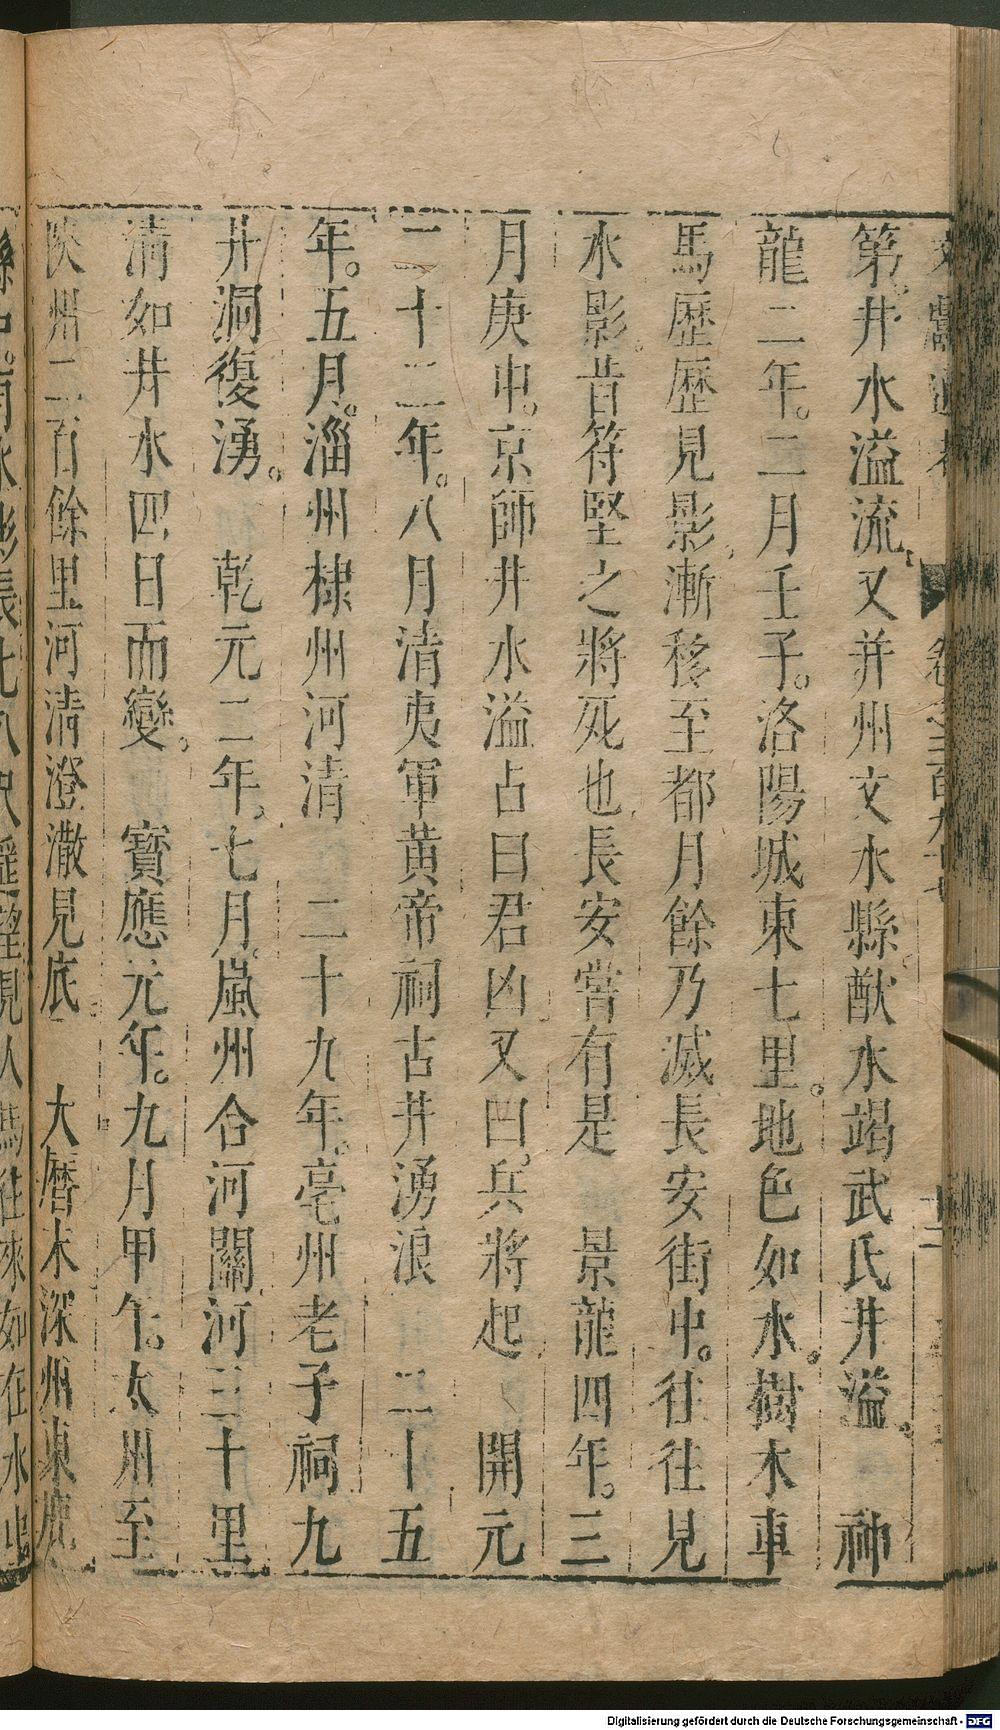 第井水溢流又并州文水縣猷水竭武氏井溢　神
龍二年。二月壬子。洛陽城東七里。地色如水。樹木車
馬歷歷見影。漸移至都月餘乃滅長安街中。往往見
水影。昔符堅之將死也長安嘗有是　景龍四年。三
月庚申。京師井水溢占曰君凶又曰。兵將起　開元
二十二年。八月清夷軍黃帝祠古井湧浪　二十五
年。五月。淄州棣州河清　二十九年。亳州老子祠九
井洞復湧。　乾元二年。七月。嵐州合河關河三十里
清如井水四日而變。　寶應元年。九月甲午。太州至
陝州二百餘里河清澄澈見底　大曆末深州束鹿
Digitalisierung gefördert durch die Deutsche Forschungsgemeinschaft - DFG